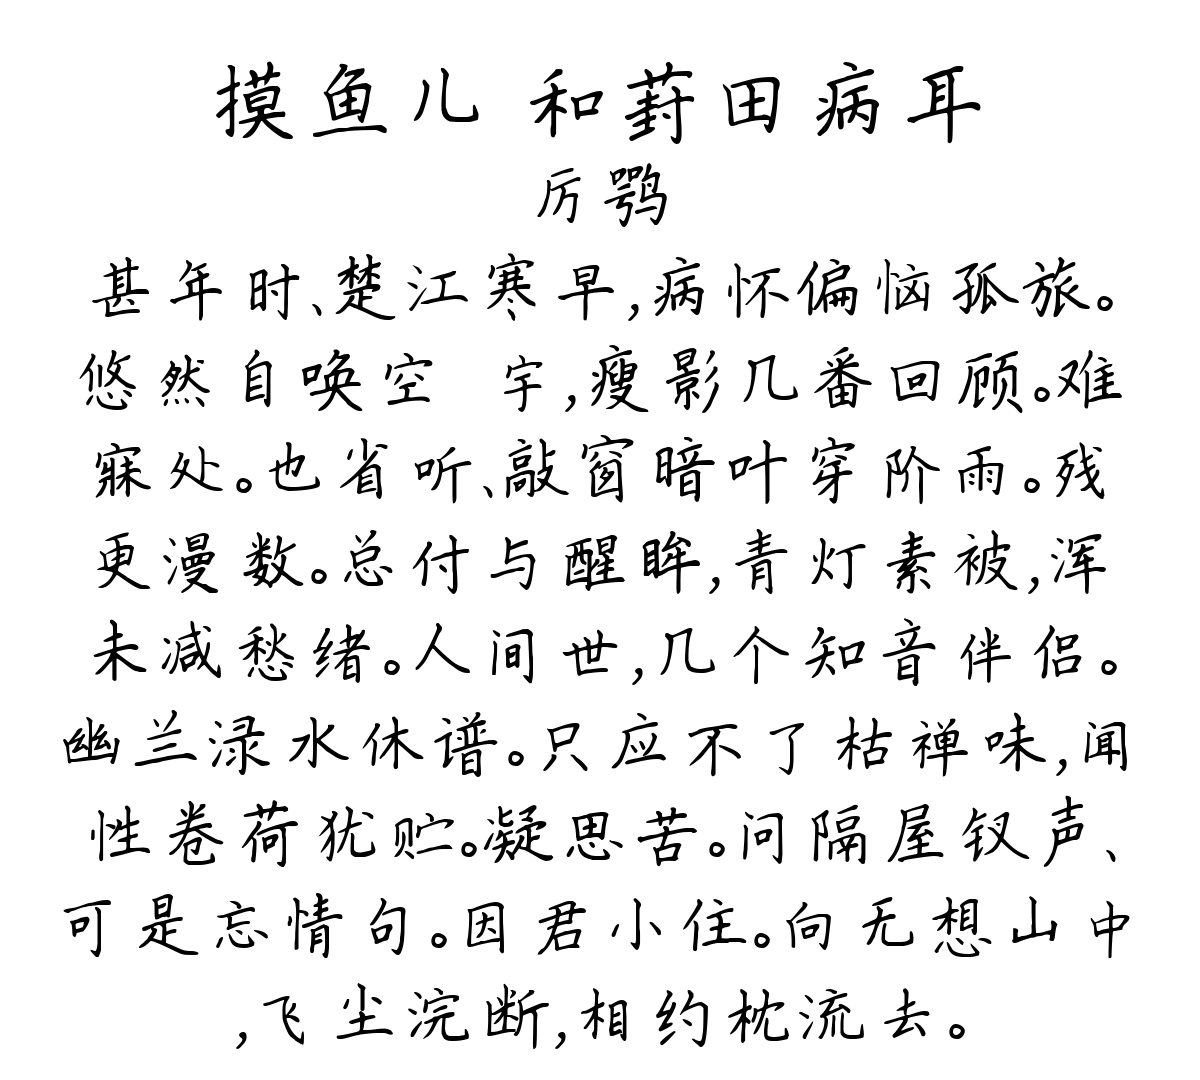 摸鱼儿 和葑田病耳
厉鹗
甚年时、楚江寒早,病怀偏恼孤旅。
悠然自唤空 宇,瘦影几番回顾。难
寐处。也省听、敲窗暗叶穿阶雨。残
更漫数。总付与醒眸,青灯素被,浑
未减愁绪。人间世,几个知音伴侣。
幽兰渌水休谱。只应不了枯禅味,闻
性卷荷犹贮。凝思苦。问隔屋钗声、
可是忘情句。因君小住。向无想山中
,飞尘浣断,相约枕流去。